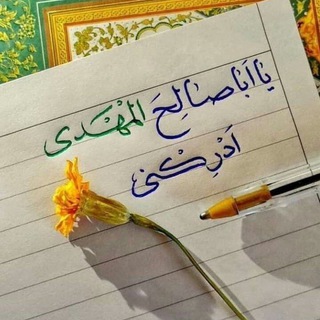 يَا اَبَا صَالِحَ الْمَهْدَی
اَدْرِکْنی